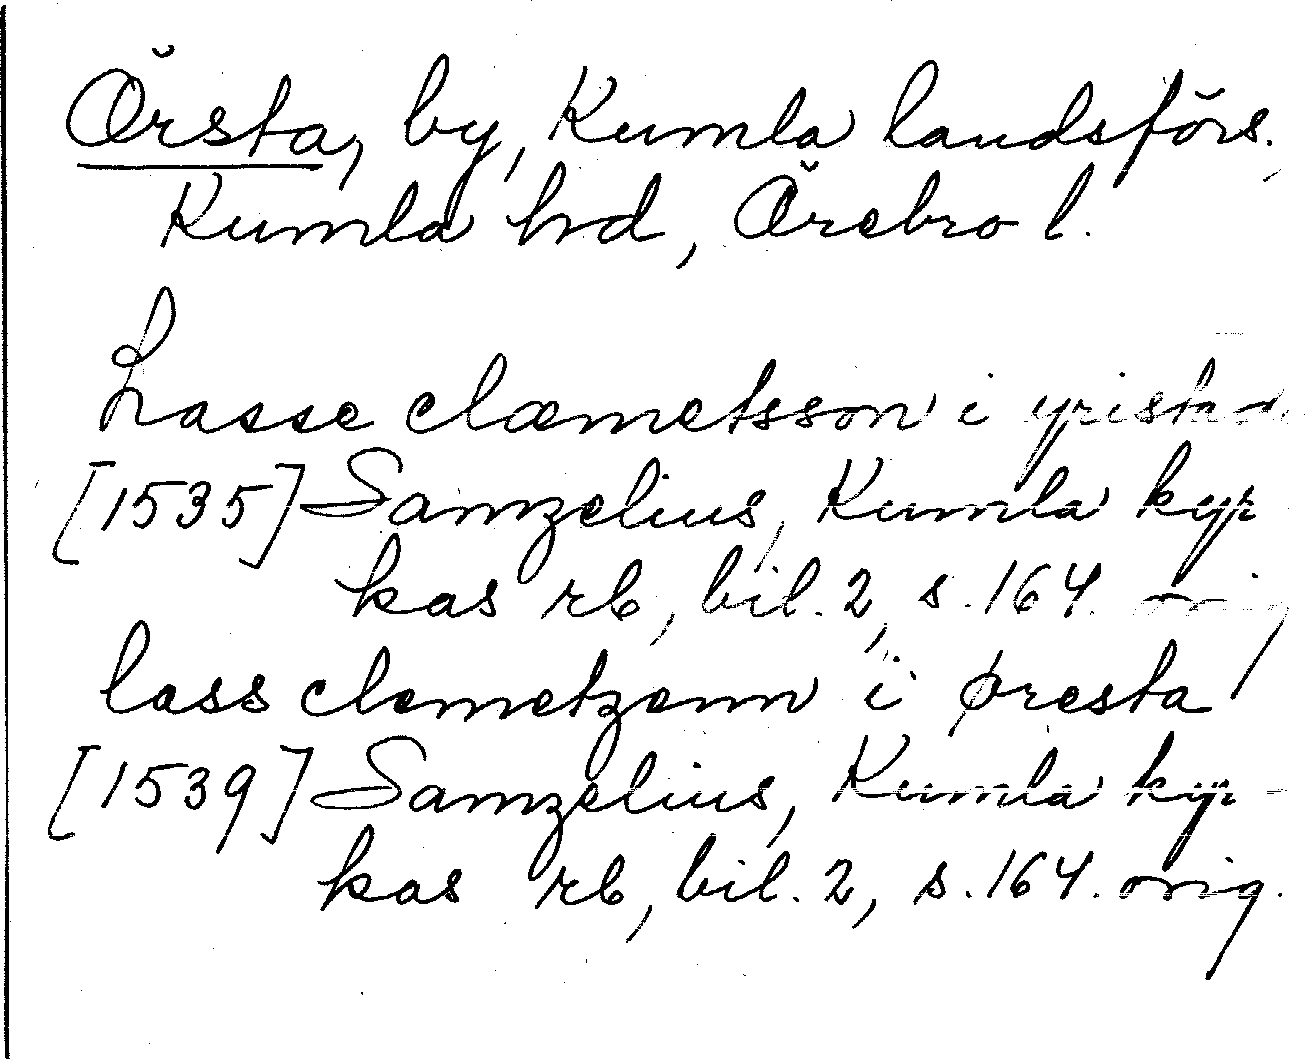 Örsta, by, Kumla landsförs.
Kumla hd, Örebro l.
Lasse clæmetsson i yristad
[1535] Samzelius, Kumla kyr
kas rb, bil. 2, s. 164. orig
lass clemetzenn i øresta
[1539] Samzelius, Kumla kyr-
kas rb, bil. 2, s. 164. orig.